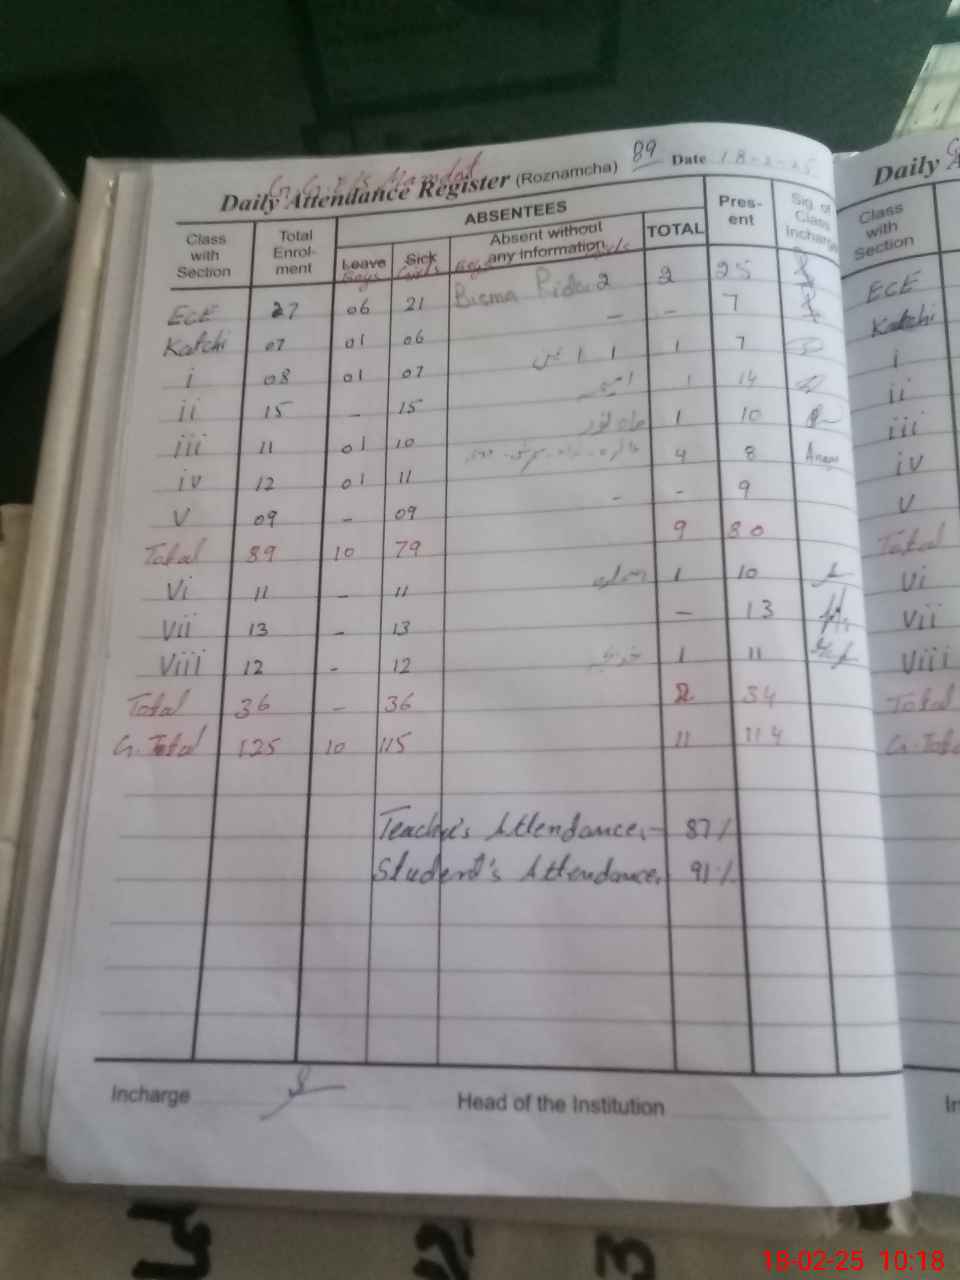 G.G.E/S Mamdot
Daily Attendance Register (Roznamcha) 89 Date 18-2-25
Class with Section Total Enrol-ment ABSENTEES Pres-ent Sig. of Class Incharge
Leave Sick Absent without any information TOTAL
Boys Girls Boys Girls
ECE 27 06 21 Bisma 2 2 25
Katchi 07 01 06 – – 7
i 08 01 07 1 7
ii 15 – 15 1 14
iii 11 01 10 ماہ نور 1 10
iv 12 01 11 4 8 Anam
V 09 – 09 – – 9
Total 89 10 79 9 80
Vi 11 – 11 1 10
Vii 13 – 13 – 13
Viii 12 – 12 1 11
Total 36 – 36 2 34
G.Total 125 10 115 11 114
Teacher's Attendance,- 87%
Student's Attendance, 91%
Incharge Head of the Institution
Daily
Class with Section
ECE
Katchi
i
ii
iii
iv
V
Total
Vi
Vii
Viii
Total
G.Tota
In
3
18-02-25 10:18